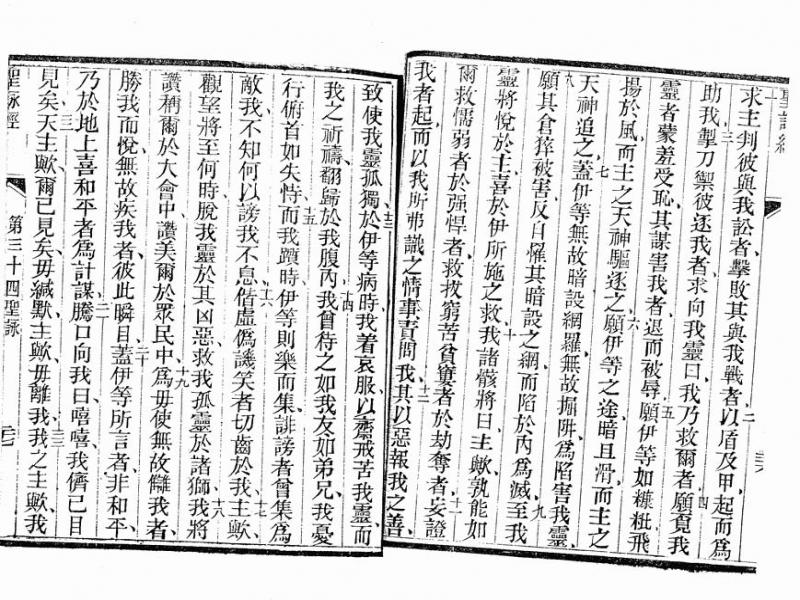 求主判彼與我訟者、擊敗其與我戰者、二以盾及甲、起而爲
助我、三掣刀禦彼逐我者、求向我靈曰、我乃救爾者、四願覔我
靈者蒙羞受恥、其謀害我者、退而被辱、五願伊等如糠粃飛
揚於風、而主之天神驅逐之、六願伊等之途暗且滑、而主之
天神追之、七蓋伊等無故暗設網羅、無故掘阱、爲陷害我靈、
八願其倉猝被害、反自懼其暗設之網、而陷於內爲滅、九至我
靈將悅於主、喜於伊所施之救、十我諸骸將曰、主歟、孰能如
爾、救懦弱者於强悍者、救拔窮苦貧窶者於劫奪者、十一妄證
我者起、而以我所弗識之情事責問我、十二其以惡報我之善、
致使我靈孤獨、十三於伊等病時、我着哀服、以齋戒苦我靈、而
我之祈禱、翻歸於我腹內、十四我曾待之、如我友如弟兄、我憂
行俯首如失恃、十五而我躓時、伊等則樂而集、誹謗者曾集爲
敵我、不知何以謗我不息、十六偕虛僞譏笑者切齒於我、十七主歟、
觀望將至何時、脫我靈於其凶惡、救我孤靈於諸獅、十八我將
讚稱爾於大會中、讚美爾於眾民中、十九爲毋使無故讎我者、
勝我而悅、無故疾我者、彼此瞬目、二十蓋伊等所言者、非和平、
乃於地上喜和平者爲計謀、二一騰口向我曰、嘻嘻、我儕已目
見矣、二二天主歟、爾已見矣、毋緘默、主歟、毋離我、二三我之主歟、我
聖詠經 第三十四聖詠